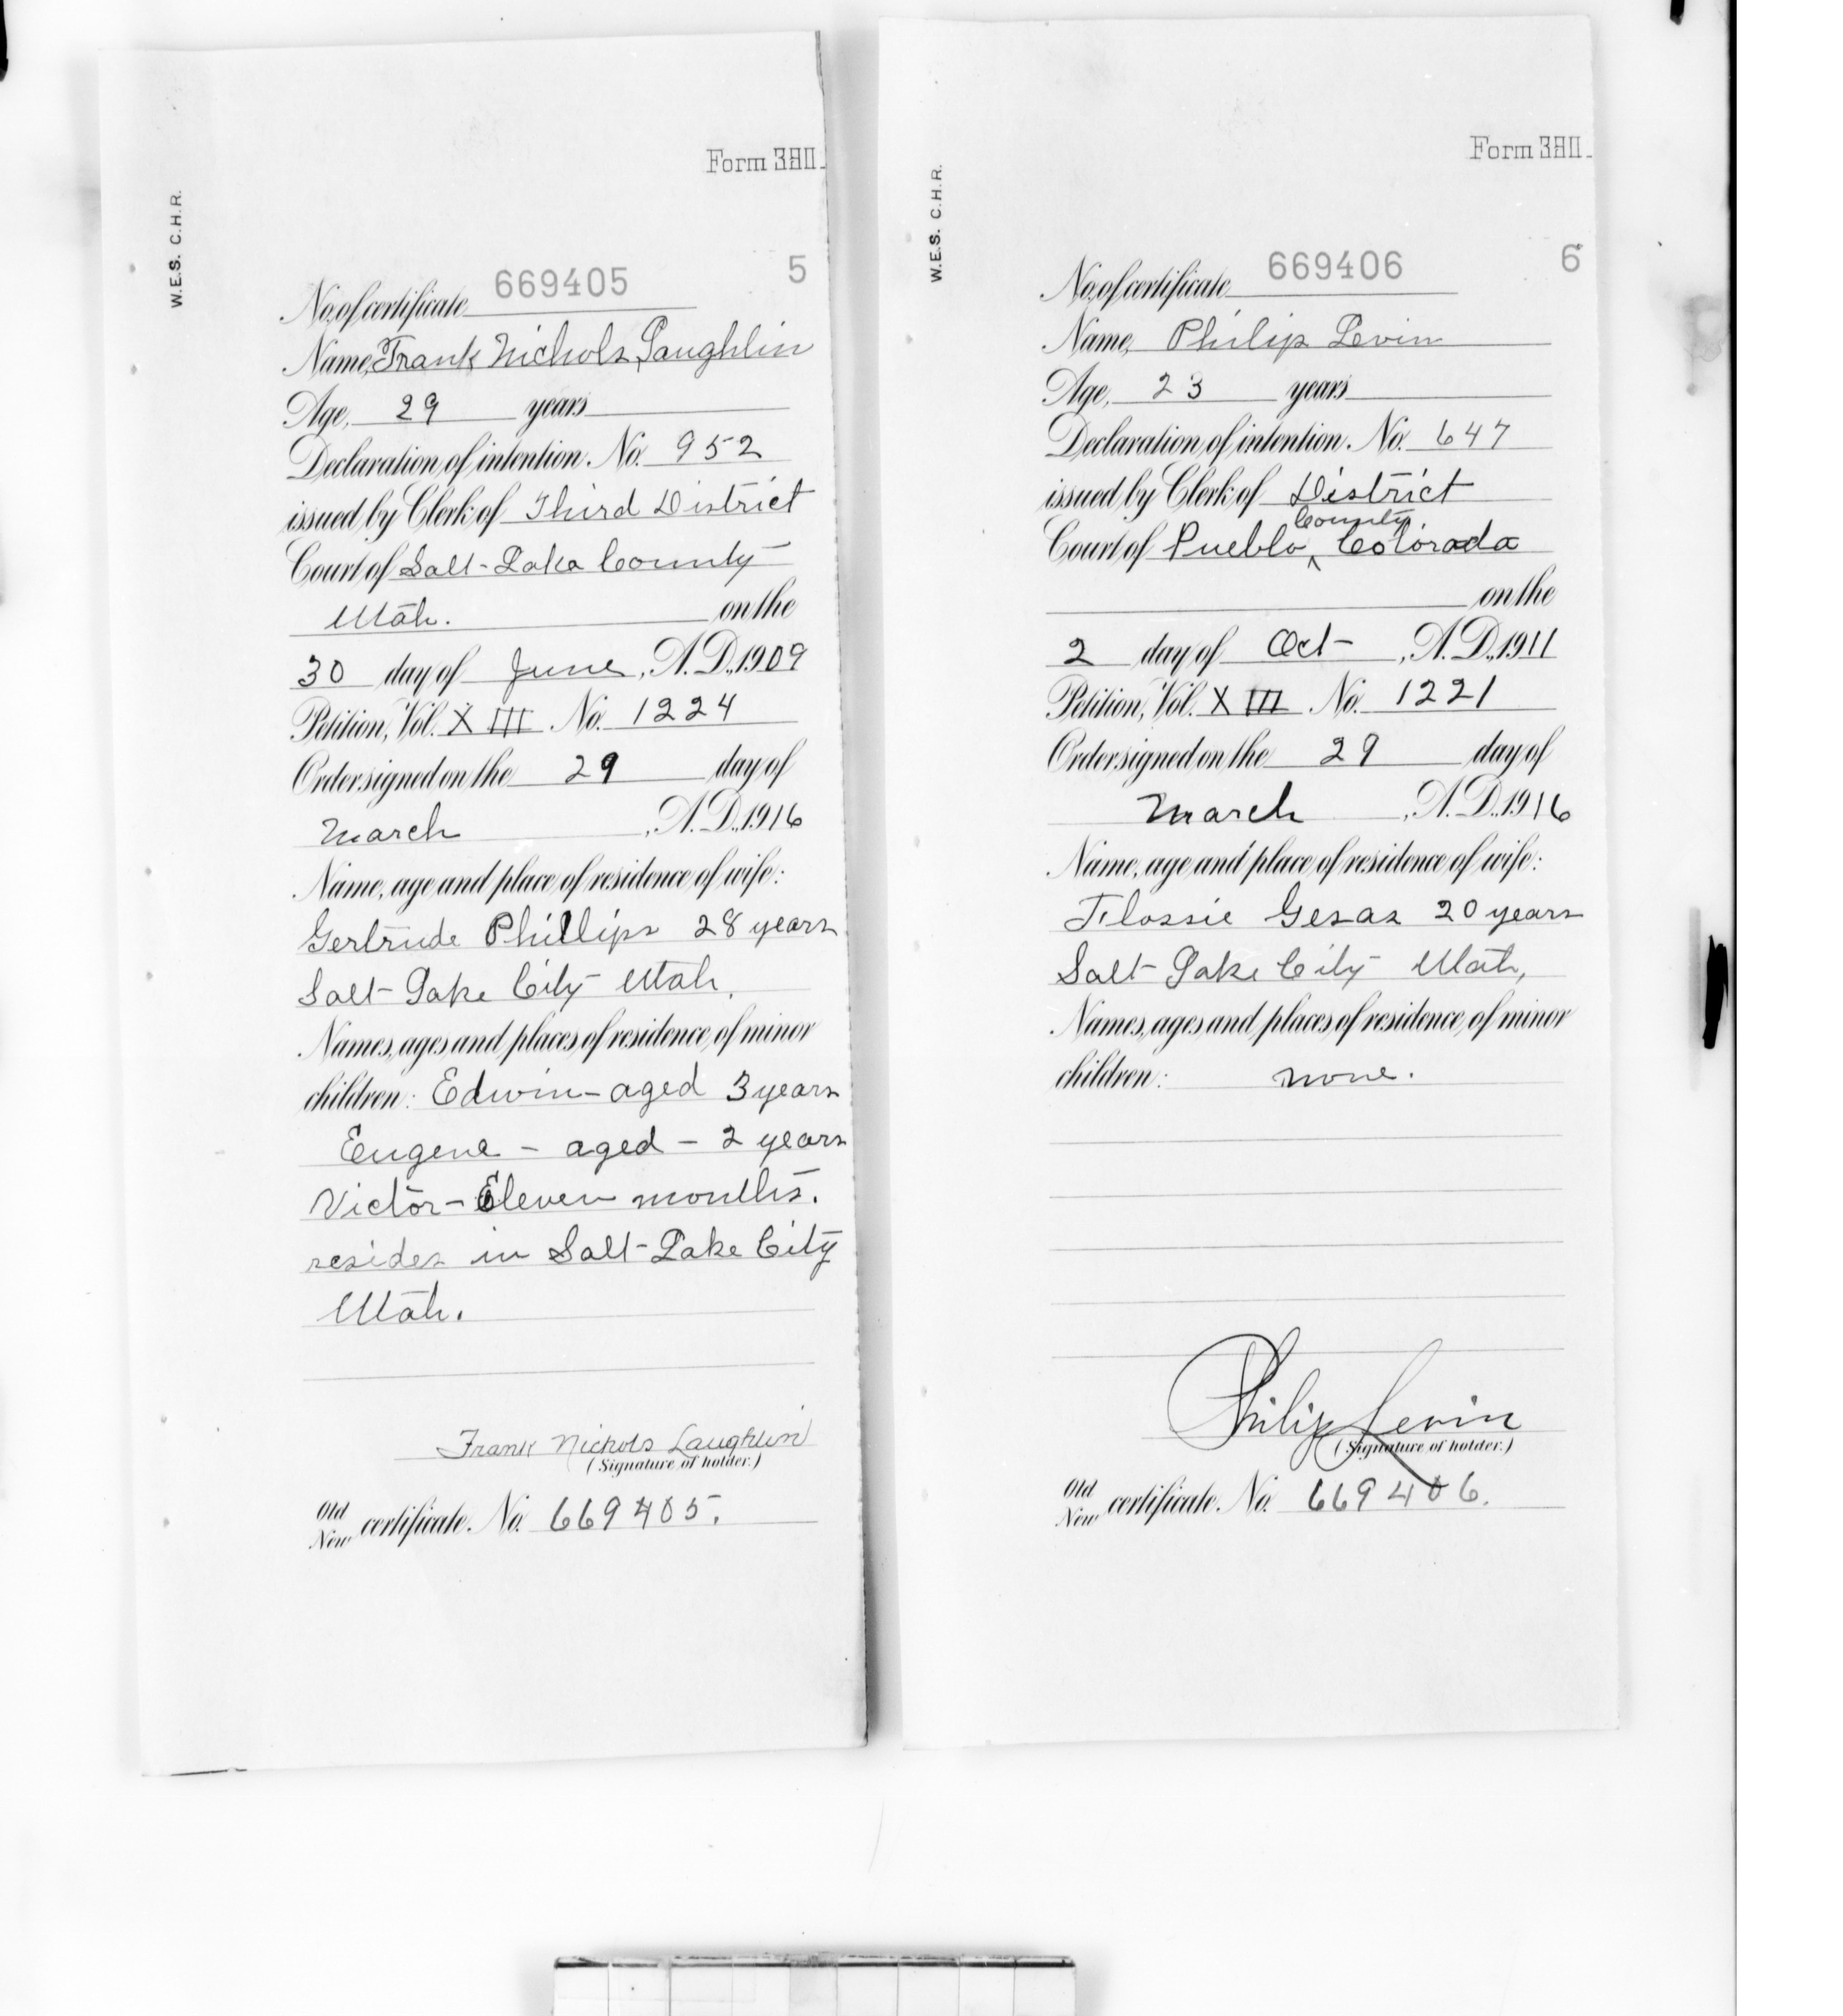 Form 380.
W.E.S. C.H.R.
5
No. of certificate 669405
Name, Frank Nichols Laughlin
Age, 29 years
Declaration of intention. No. 952
issued by Clerk of Third District
Court of Salt-Lake County
Utah. on the
30 day of June, A.D., 1909
Petition, Vol. XIII No. 1224
Order signed on the 29 day of
March, A.D., 1916
Name, age and place of residence of wife:
Gertrude Phillips 28 years
Salt-Lake City Utah.
Names, ages and places of residence of minor
children: Edwin-aged 3 years
Eugene - aged - 2 years
Victor-Eleven months.
resides in Salt-Lake City
Utah.
Frank Nichols Laughlin
(Signature of holder.)
Old
New certificate. No. 669405.
Form 380.
W.E.S. C.H.R.
6
No. of certificate 669406
Name, Philip Levin
Age, 23 years
Declaration of intention. No. 647
issued by Clerk of District
County
Court of Pueblo ^ Colorado
on the
2 day of Oct-, A.D., 1911
Petition, Vol. XIII No. 1221
Order signed on the 29 day of
March, A.D., 1916
Name, age and place of residence of wife:
Flossie Gesas 20 years
Salt-Lake City Utah,
Names, ages and places of residence of minor
children: none.
Philip Levin
(Signature of holder.)
Old
New certificate. No. 669406.